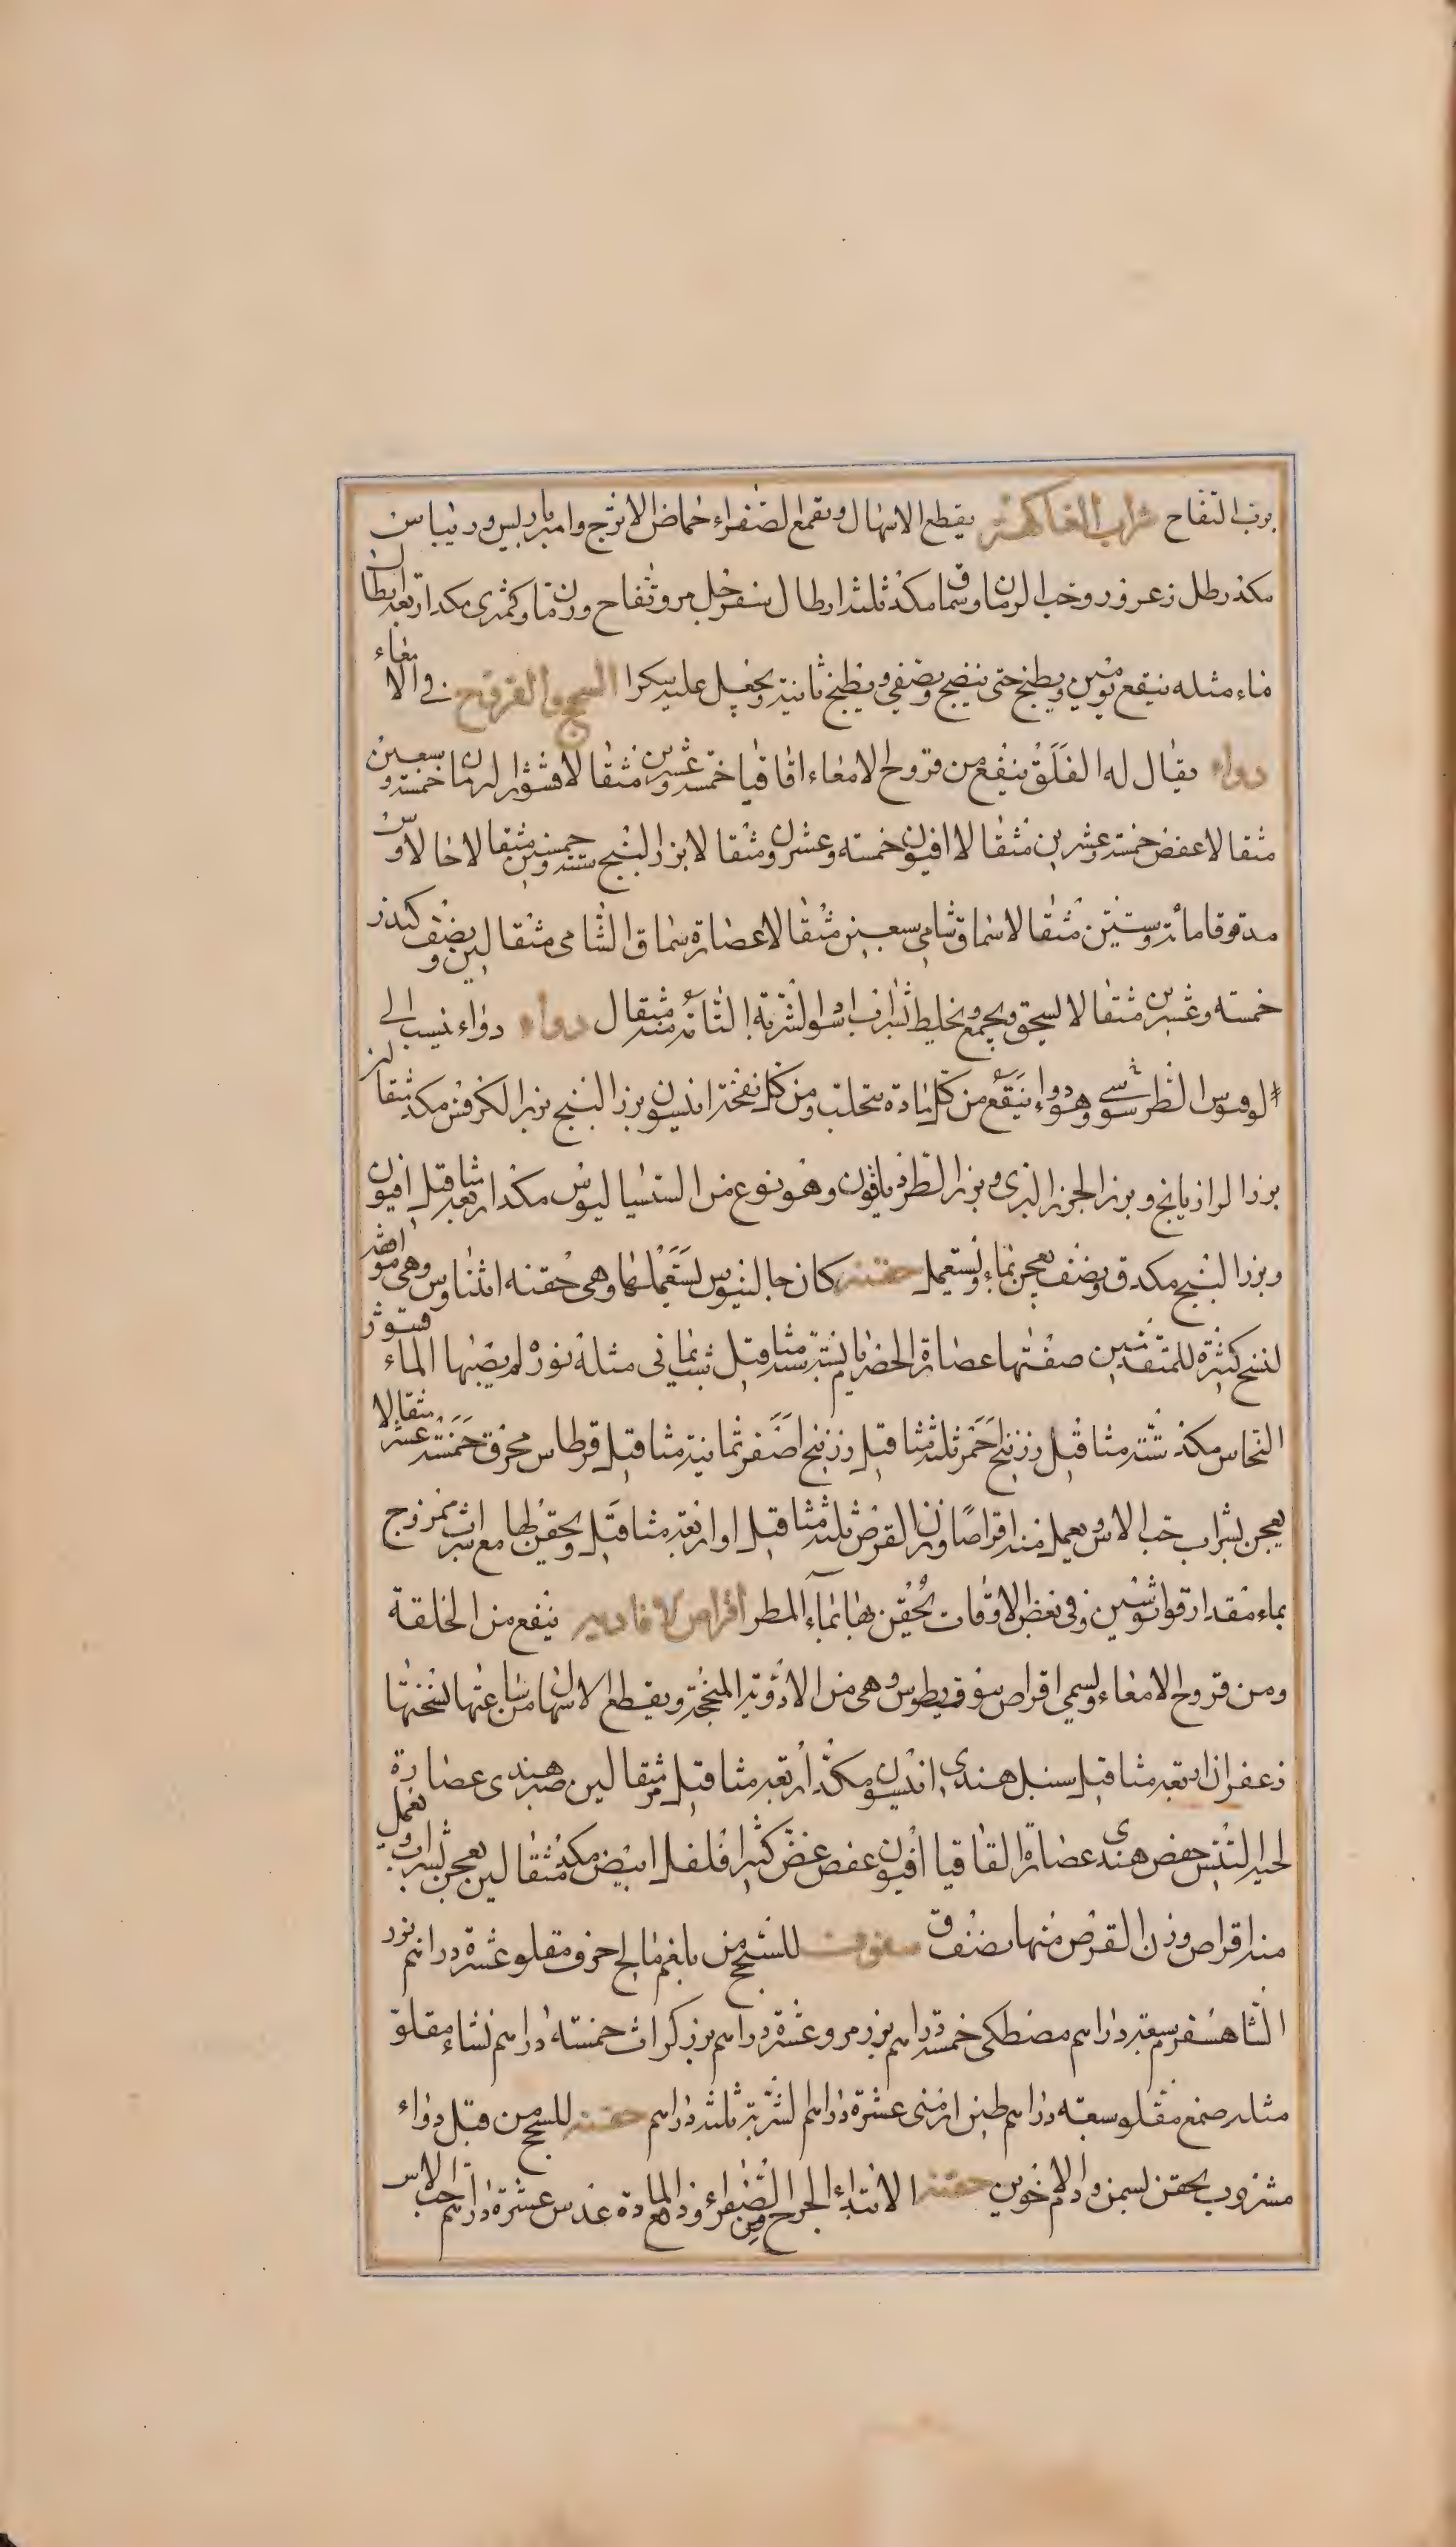 برب التفاح شراب الفاكهة يقطع الاسهال ويقمع الصفراء حماض الاترج وامبرباريس وريباس من
مكد رطل زعرور وحب الرمان وسماق مكد ثلثة ارطال سفرجل مر وتفاح ورمان وكمثرى مكد اربعة ارطال
ماء مثله ينقع يومين ويطبخ حتى ينضج ويصفي ويطبخ ثانية ويجعل عليه سكرا السحج والقروح في الامعاء
دواء يقال له الفلق ينفع من قروح الامعاء اقاقيا خمسة وعشرين مثقالا قشور الرمان خمسة وسبعين
مثقالا عفص خمسة وعشرين مثقالا افيون خمسه وعشرون مثقالا بزر البنج ستة وخمسين مثقالا حب الاس
مدقوقا مائة وستين مثقالا سماق شامي سبعين مثقالا عصارة سماق الشامي مثقالين ونصف كندر
خمسه وعشرين مثقالا يسحق ويجمع ويخلط بشراب اس والشربة التامة منه مثقال دواء دواء نيسب الى
لوقوس الطرسوسي وهو دواء ينفع من كل مادة تتحلب ومن كل نفخة انيسون بزر البنج بزر الكرفس مكد مثقا
بزر الرازيانج وبزر الجزر البري وبزر الطرذيليون وهو نوع من السسياليوس مكد اربعة مثاقيل افيون
وبزر البنج مكد ق ونصف يعجن بماء ويستعمل حقنة كان جالينوس يستعملها وهي حقنه اثناوس وهي موافقة
لنسخ كثيرة للمتقدمين صفتها عصارة الحضرم يابسة ستة مثاقيل شب يماني مثله نورة لم يصبها الماء قشور
النحاس مكد ستة مثاقيل زرنيخ احمر ثلثة مثاقيل زرنيخ اصفر ثمانية مثاقيل قرطاس محرق خمسة عشر مثقالا
يعجن بشراب حب الاس ويعمل منه اقراصا وزن القرص ثلثة مثاقيل او اربعة مثاقيل ويحقن لها مع شراب ممزوج
بماء مقدار قواثوسين وفي بعض الاوقات يحقن بها بماء المطر اقراص لافاديه ينفع من الخلقة
ومن قروح الامعاء ويسمي اقراص سوفريطوس وهي من الادوية المنجحة ويقطع الاسهال من ساعتها نسختها
زعفران اربعة مثاقيل سنبل هندي انيسون مكد اربعة مثاقيل مر مثقالين صبر هندي عصارة
لحية التيس حضض هندي عصارة القاقيا افيون عفص غض كثيرا فلفل ابيض مكد مثقالين يعجن بشراب ويعمل
منه اقراص وزن القرص منها نصف ق سفوف للسحج من بلغم مالح حرف مقلو عشرة دراهم بزر
الشاهسفرم سبعة دراهم مصطكى خمسة دراهم بزر مرو عشرة دراهم بزر كراث خمسه دراهم نشاء مقلو
مثله صمغ مقلو سبعة دراهم طين ارمني عشرة دراهم الشربة ثلثة دراهم حقنة للسحج من قبل دواء
مشروب يحقن بسمن ودم الاخوين حقنة لابتداء الجرح من الصفراء وذ المادة عدس عشرة دراهم حب الاس